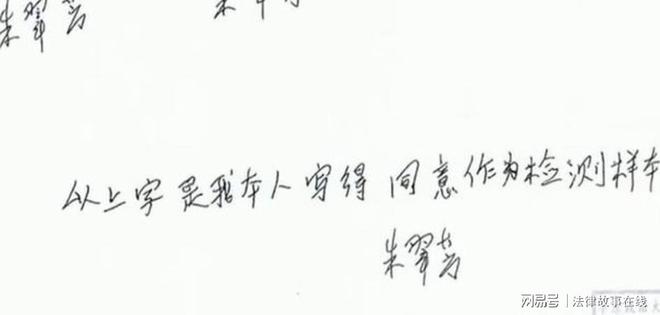 朱翠芳
朱
以上字是我本人写得 同意作为检测样本
朱翠芳
网易号 | 法律故事在线